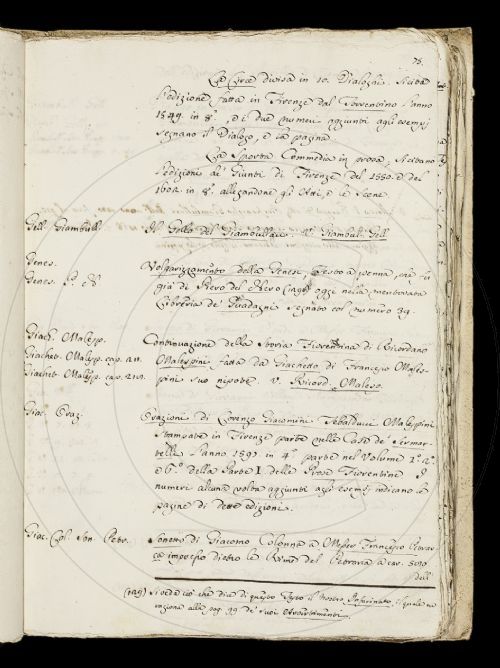 75.
La Circe divisa in 10. Dialoghi. Si cita
l'edizione fatta in Firenze dal Torrentino l'anno
1549. in 8°, e i due numeri aggiunti agli esempj
segnano il Dialogo, e la pagina.
La Sporta Commedia in prosa, si citano
l'edizioni de' Giunti di Firenze del 1550. e del
1602. in 8°. allegandone gli Atti, e le Scene.
Gell. Giambull. Il Gello del Giambullari. V. Giambul. Gell.
Genes. Volgarizzamento della Genesi, testo a penna, che fu
Genes. P. N. già di Piero del Nero (129) oggi nella mentovata
Libreria de' Guadagni segnato col numero 39.
Giach. Malesp. Continuazione della Storia Fiorentina di Ricordano
Giachet. Malesp. cap. 211. Malespini fatta da Giachetto di Francesco Males-
Giachet. Malesp. cap. 219. pini suo nipote. V. Ricord. Malesp.
Giac. Oraz. Orazioni di Lorenzo Giacomini Tebalducci Malespini
Stampate in Firenze parte nelle Case de' Sermar-
telli l'anno 1597. in 4° parte nel Volume
e 6°. della Parte I. delle Prose Fiorentine. I
numeri alcuna volta aggiunti agli esempj indicano le
pagine di dette edizioni.
Giac. Col. Son. Petr. Sonetto di Giacomo Colonna a Messer Francesco Petrar-
ca impresso dietro le Rime del Petrarca a car. 500
dell'
(129) Si veda ciò che dice di questo Testo il nostro Infarinato,
nella pag. 99 de' suoi Avvertimenti.